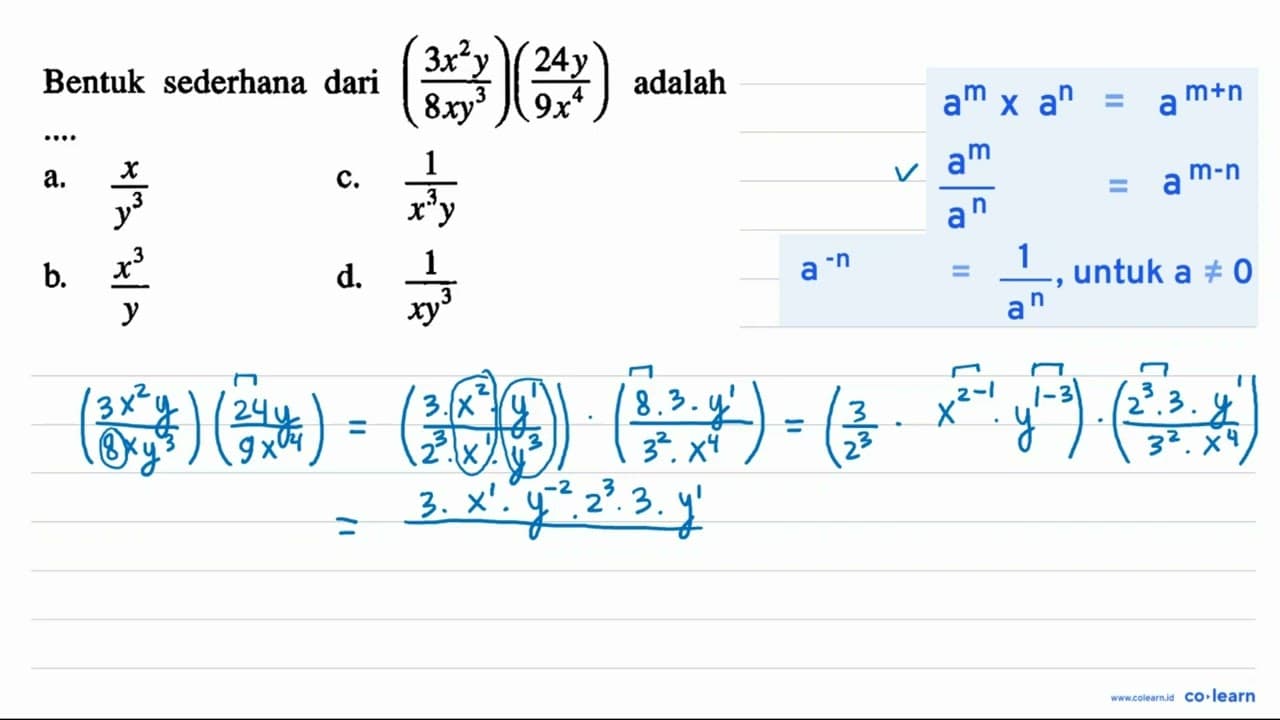 Bentuk sederhana dari (3x²y / 8xy³)(24y / 9x⁴) adalah
....
a. x / y³
c. 1 / x³y
b. x³ / y
d. 1 / xy³
aᵐ x aⁿ = aᵐ⁺ⁿ
✓ aᵐ / aⁿ = aᵐ⁻ⁿ
a⁻ⁿ = 1 / aⁿ, untuk a ≠ 0
(3x²y / 8xy³)(24y / 9x⁴) = (3.x².y¹ / 2³.x¹.y³) . (8.3.y¹ / 3².x⁴) = (3 / 2³ . x²⁻¹ . y¹⁻³) . (2³.3.y¹ / 3².x⁴)
= 3.x¹.y⁻².2³.3.y¹
www.colearn.id co·learn